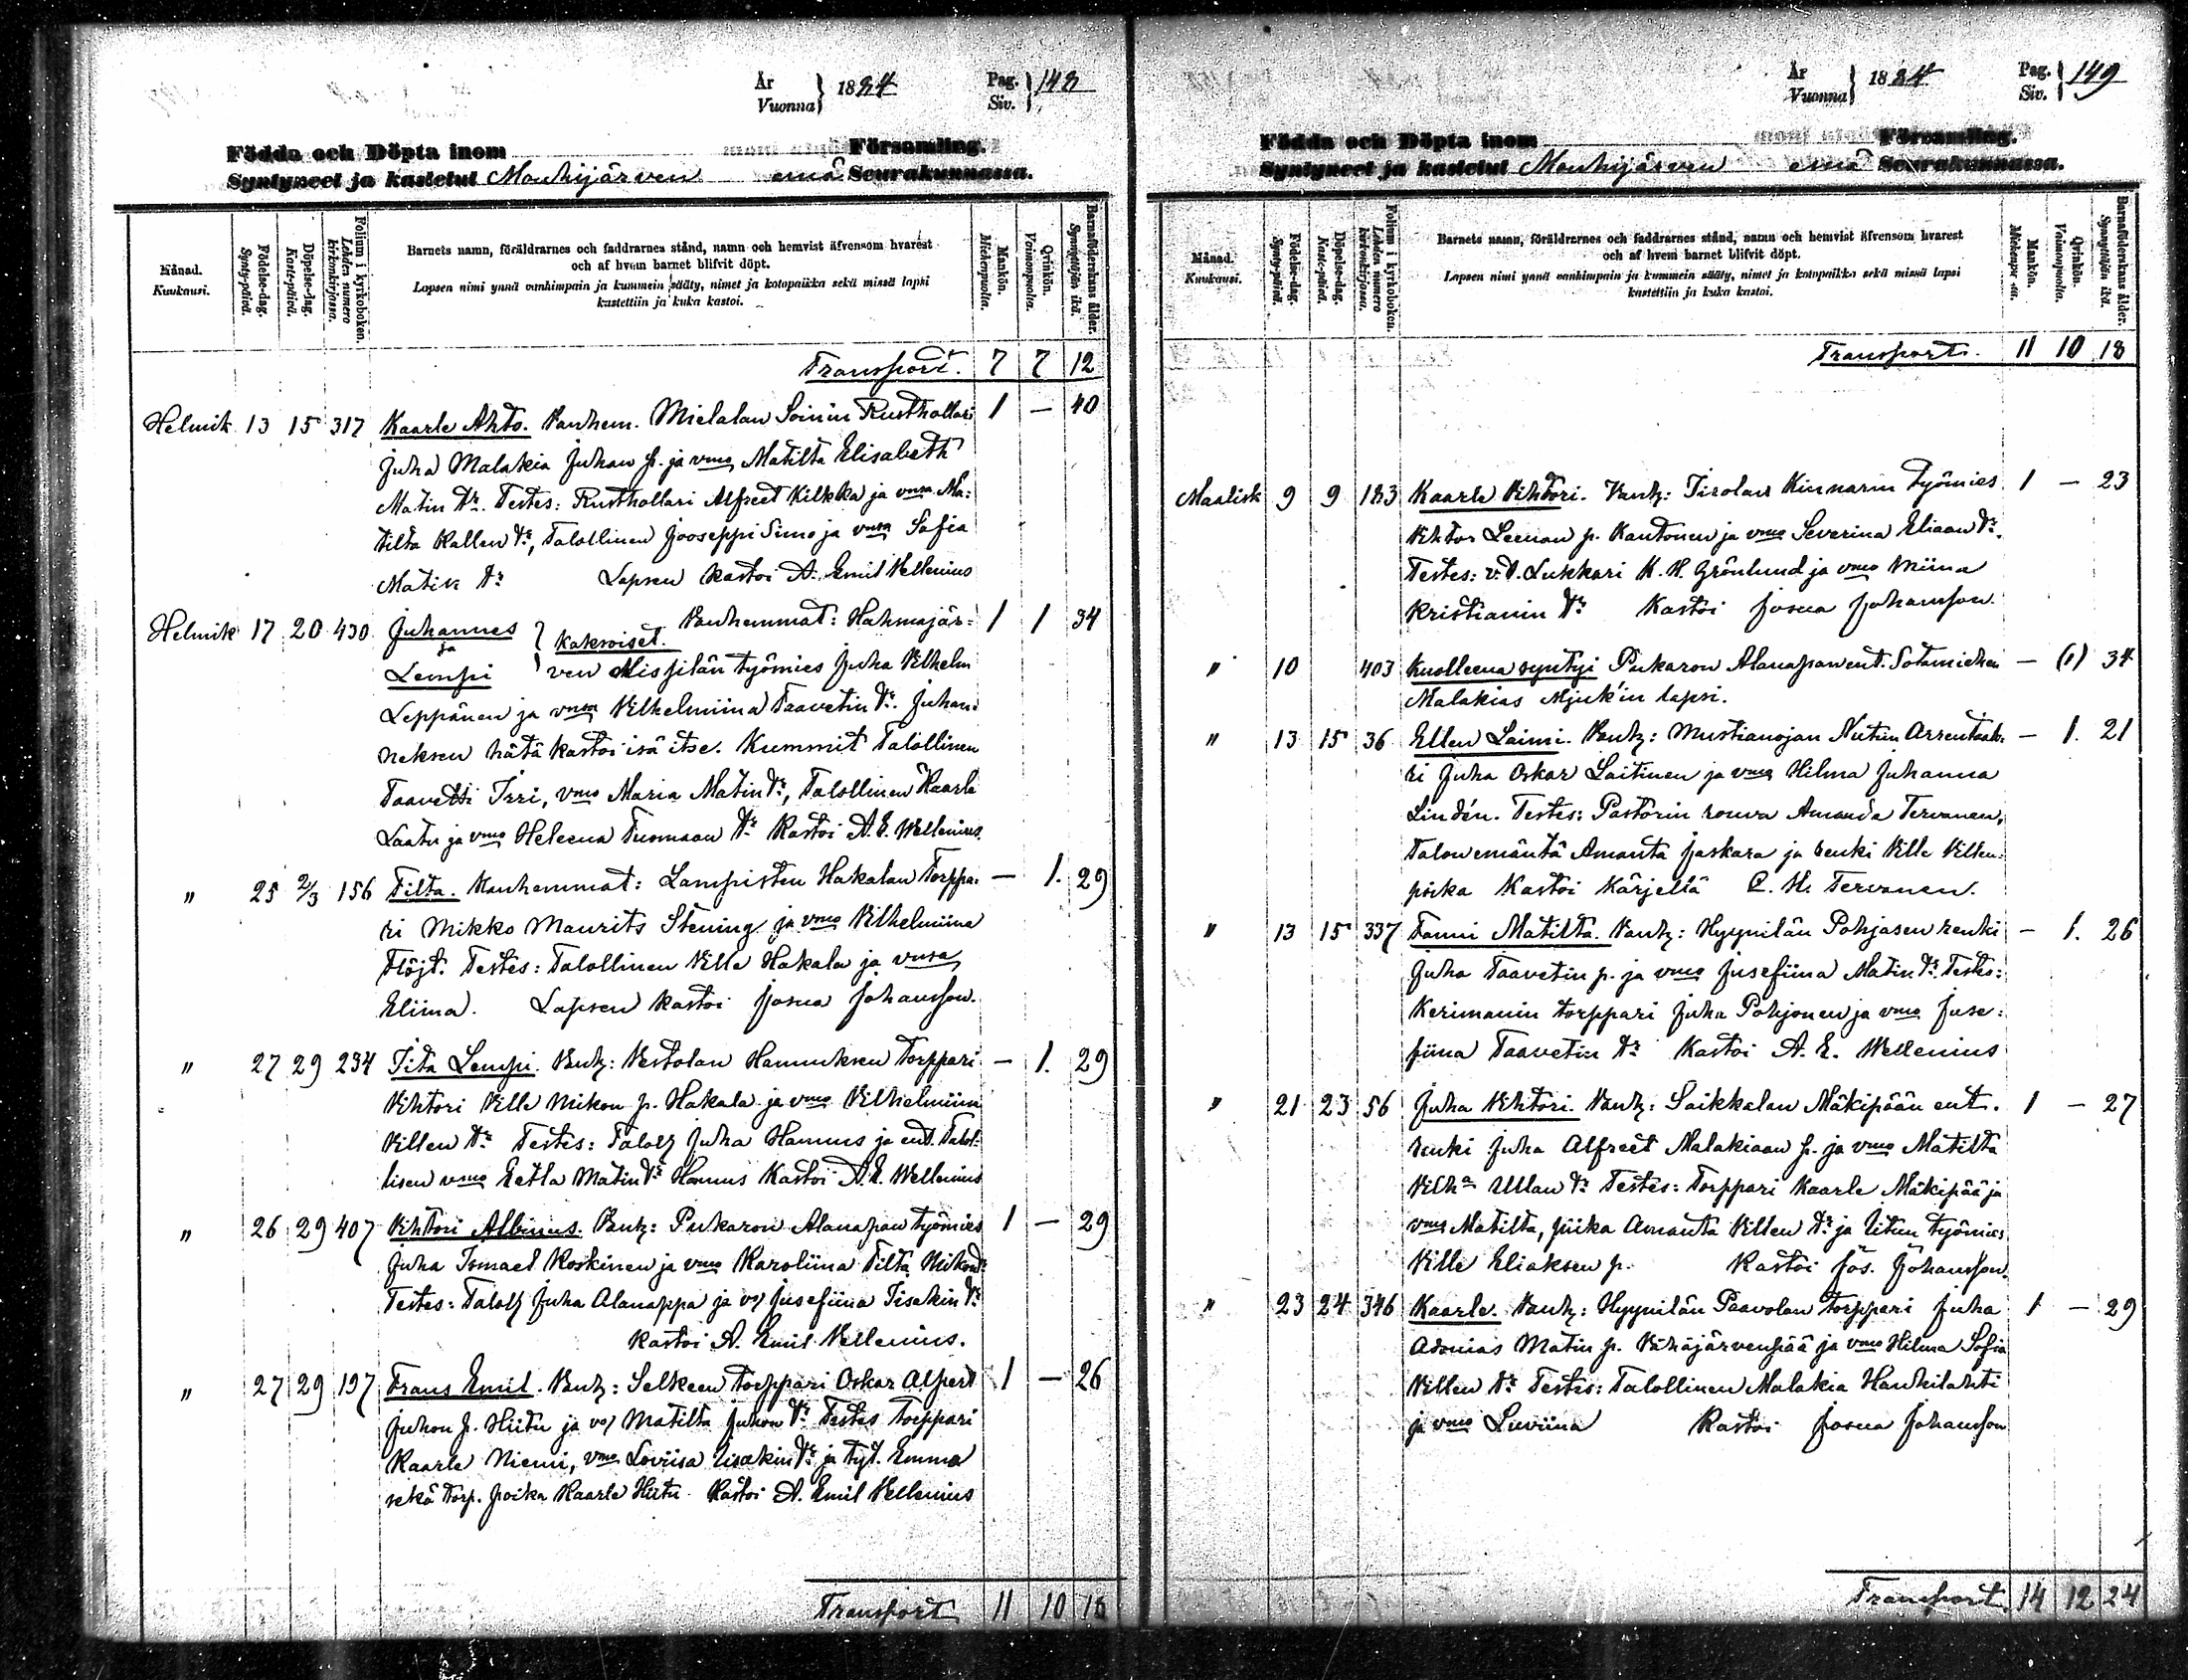 År
Vuonna } 1884 Pag.
Siv. } 148
Födda och Döpta inom Församling.
Syntyneet ja kastetut Mouhijärven emä Seurakunnassa.
Månad.
Kuukausi.
Födelse-dag.
Synty-päivä.
Döpelse-dag.
Kaste-päivä.
Folium i kyrkoboken.
Lehden numero
kirkonkirjassa.
Barnets namn, föräldrarnes och faddrarnes stånd, namn och hemvist äfvensom hvarest
och af hvem barnet blifvit döpt.
Lapsen nimi ynnä vanhimpain ja kummein sääty, nimet ja kotopaikka sekä missä lapsi
kastettiin ja kuka kastoi.
Mankön.
Miehenpuolta.
Qvinkön.
Vaimonpuolta.
Barnaföderskans ålder.
Synnyttäjän ikä.
Transport. 7 7 12
Helmik 13 15 317 Kaarle Ahto. Vanhem. Mielalan Soinin Rusthollari 1 — 40
Juha Malakia Juhan p. ja vmo Matilta Elisabeth
Matin tr. Testes: Rusthollari Alfred Kilkka ja vmsa Ma-
tilta Kallen tr, Talollinen Jooseppi Simo ja vmsa Sofia
Matin tr Lapsen kastoi A. Emil Vellenius
Helmik 17 20 430 Juhannes } Vanhemmat: Hahmajär- 1 1 34
ja kaksoiset.
Lempi ven Missilän työmies Juha Vilhelm
Leppänen ja vmsa Vilhelmiina Taavetin tr. Juhan-
neksen hätäkastoi isä itse. Kummit Talollinen
Taavetti Irri, vmo Maria Matin tr, Talollinen Kaarle
Laatu ja vmo Heleena Tuomaan tr Kastoi A. E. Wellenius
" 25 2/3 156 Tilta. Vanhemmat: Lampisten Hakalan Torppa- — 1. 29
ri Mikko Maurits Stening ja vmo Vilhelmiina
Flöjt. Testes: Talollinen Ville Hakala ja vmsa
Eliina. Lapsen kastoi Josua Johansson.
" 27 29 234 Iita Lempi. Vanh: Vestolan Hannuksen Torppari — 1. 29
Vihtori Ville Mikon p. Hakala ja vmo Vilhelmiina
Villen tr Testes: Talol Juha Hannus ja ent. Talol-
lisen vmo Eetla Matin tr Hannus Kastoi A. E. Wellenius
" 26 29 407 Vihtori Albinus. Vanh: Pukaron Alanapan työmies 1 — 29
Juha Ismael Koskinen ja vmo Karoliina Tilta Mikon tr
Testes: Talol Juha Alanappa ja vo Jusefiina Iisakin tr
Kastoi A. Emil Vellenius.
" 27 29 197 Frans Emil. Vanh: Selkeen torppari Oskar Alfred 1 — 26
Juhon p. Hiitu ja vo Matilta Juhon tr Testes Torppari
Kaarle Niemi, vmo Loviisa Iisakin tr ja tyt. Emma
sekä Torp. poika Kaarle Hiitu Kastoi A. Emil Vellenius
Transport 11 10 18
År
Vuonna } 1884 Pag.
Siv. } 149
Födda och Döpta inom Församling.
Syntyneet ja kastetut Mouhijärven emä Seurakunnassa.
Månad.
Kuukausi.
Födelse-dag.
Synty-päivä.
Döpelse-dag.
Kaste-päivä.
Folium i kyrkoboken.
Lehden numero
kirkonkirjassa.
Barnets namn, föräldrarnes och faddrarnes stånd, namn och hemvist äfvensom hvarest
och af hvem barnet blifvit döpt.
Lapsen nimi ynnä vanhimpain ja kummein sääty, nimet ja kotopaikka sekä missä lapsi
kastettiin ja kuka kastoi.
Mankön.
Miehenpuolta.
Qvinkön.
Vaimonpuolta.
Barnaföderskans ålder.
Synnyttäjän ikä.
Transport. 11 10 18
Maalisk 9 9 183 Kaarle Vihtori. Vanh: Tirolan Kinnarin Työmies 1 — 23
Vihtor Leenan p. Kantonen ja vmo Severina Eliaan tr.
Testes: v.t. Lukkari K. H. Grönlund ja vmo Miina
Kristianin tr Kastoi Josua Johansson.
" 10 403 Kuolleena syntyi Pukaron Alanapan ent. Sotamiehen — (1) 34
Malakias Mjuk'in lapsi.
" 13 15 36 Ellen Laimi. Vanh: Mustianojan Uutun Arrentaat- — 1. 21
ri Juha Oskar Laitinen ja vmo Hilma Juhanna
Lindén. Testes: Pastorin rouva Amanda Tervanen,
Talon emäntä Amanta Jaskara ja renki Ville Villen-
poika Kastoi Kärjellä C. H. Tervonen.
" 13 15 337 Fanni Matilta. Vanh: Hyynilän Pohjasen renki — 1. 26
Juha Taavetin p. ja vmo Jusefiina Matin tr. Testes:
Kerimanin torppari Juha Pohjonen ja vmo Juse-
fiina Taavetin tr Kastoi A. E. Wellenius
" 21 23 56 Juha Vihtori. Vanh: Saikkalan Mäkipään ent. 1 — 27
renki Juha Alfreet Malakiaan p. ja vmo Matilta
Vilha Ullan tr Testes: Torppari Kaarle Mäkipää ja
vmo Matilta, piika Amanta Villen tr ja Uitun työmies
Ville Eliaksen p. Kastoi Jos. Johansson.
" 23 24 346 Kaarle. Vanh: Hyynilän Paavolan torppari Juha 1 — 29
Adonias Matin p. Vähäjärvenpää ja vmo Hilma Sofia
Villen tr Testes: Talollinen Malakia Haukilahti
ja vmo Luviina Kastoi Josua Johansson
Transport. 14 12 24